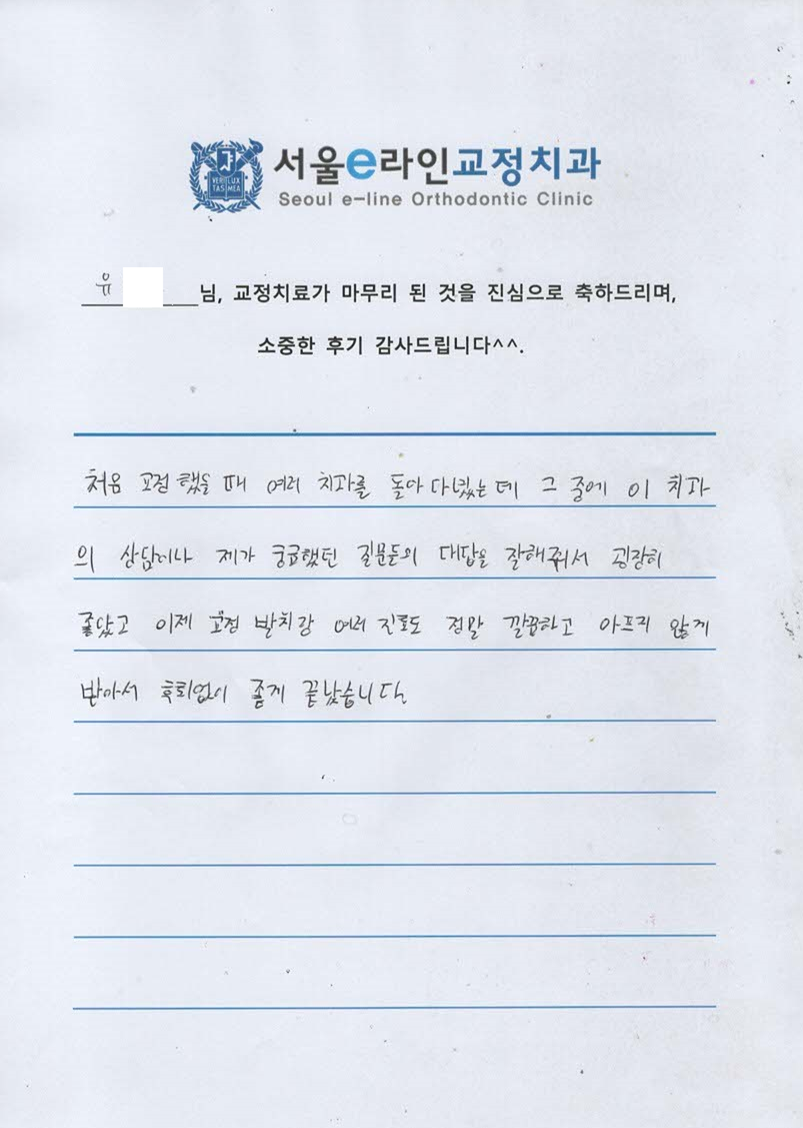 서울e라인교정치과
VERI LUX
TAS MEA
Seoul e-line Orthodontic Clinic
유 님, 교정치료가 마무리 된 것을 진심으로 축하드리며,
소중한 후기 감사드립니다^^.
처음 교정 했을 때 여러 치과를 돌아 다녔는데 그 중에 이 치과
의 상담이나 제가 궁금했던 질문들의 대답을 잘해줘서 굉장히
좋았고 이제 교정 발치랑 여러 진료도 정말 깔끔하고 아프지 않게
받아서 후회없이 좋게 끝났습니다